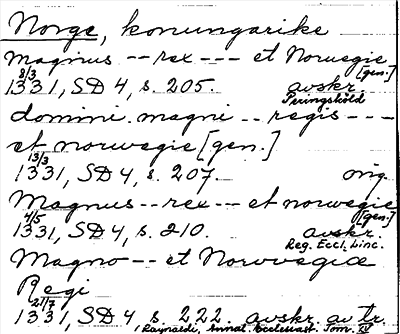 Norge, konungarike
Magnus -- rex --- et Noruegie
[gen.]
8/3
1331, SD 4, s. 205. avskr.
Peringsköld
domini magni -- regis ---
et norwegie [gen.]
13/3
1331, SD 4, s. 207. orig.
Magnus -- rex -- et norwegie
[gen.]
4/5
1331, SD 4, s. 210. avskr.
Reg. Eccl. Linc.
Magno -- et Norvvegiæ
Regi
21/7
1331, SD 4, s. 222. avskr. av tr.
Raynaldi, Annal. Ecclesiast. Tom. IV